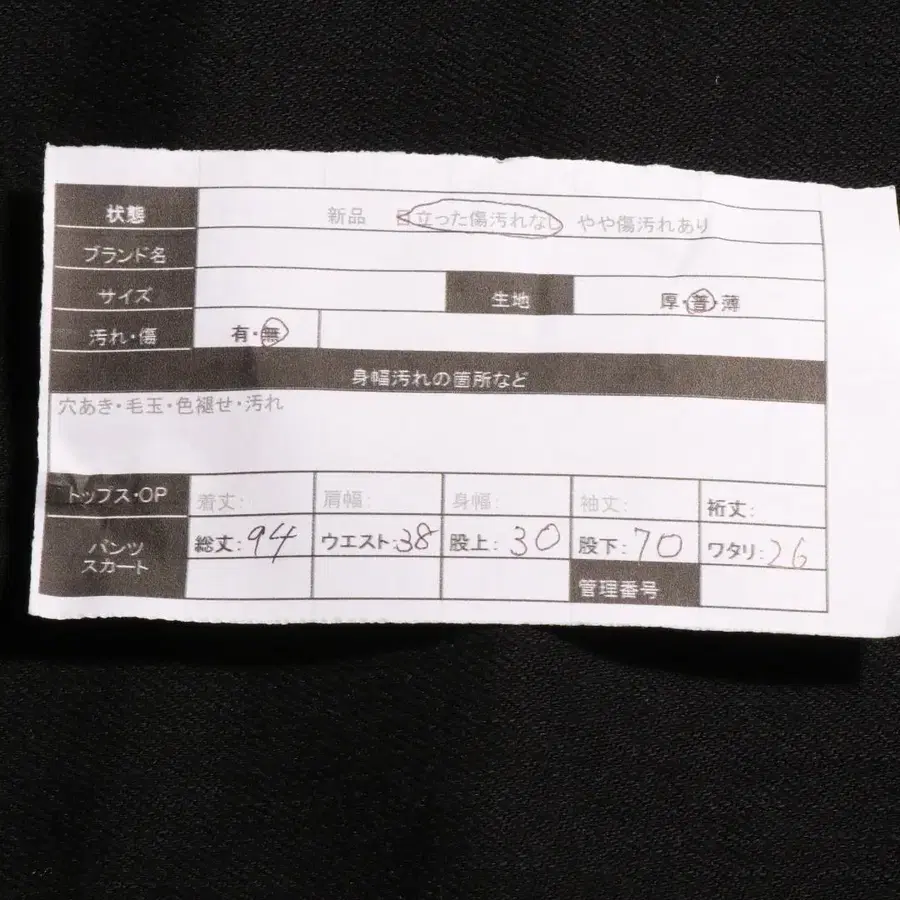 状態 新品 目立った傷汚れなし やや傷汚れあり
ブランド名
サイズ 生地 厚・普・薄
汚れ・傷 有・無
身幅汚れの箇所など
穴あき・毛玉・色褪せ・汚れ
トップス・OP 着丈: 肩幅: 身幅: 袖丈: 裄丈:
パンツ スカート 総丈:94 ウエスト:38 股上:30 股下:70 ワタリ:26
管理番号